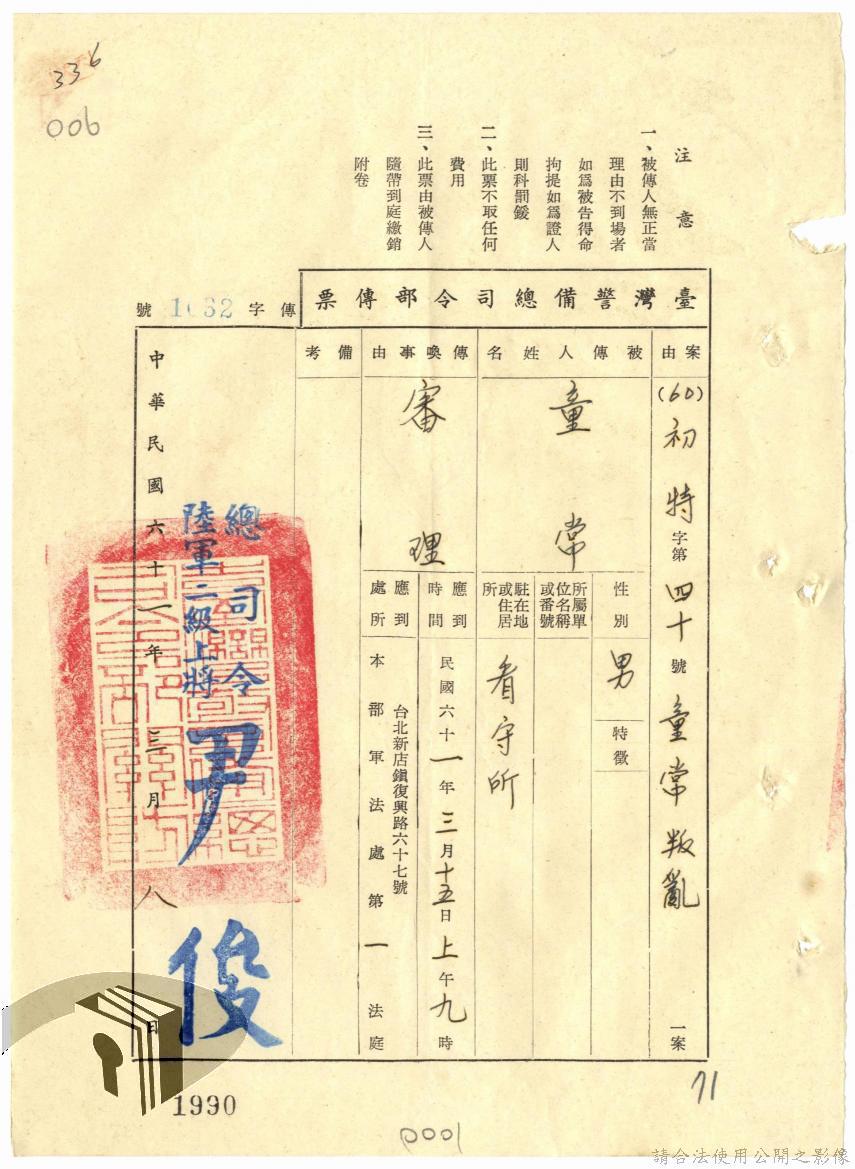 336
006
注意
一、被傳人無正當
理由不到場者
如爲被告得命
拘提如爲證人
則科罰鍰
二、此票不取任何
費用
三、此票由被傳人
隨帶到庭繳銷
附卷
臺灣警備總司令部傳票
傳字1032號
案由
(60)初特字第四十號童常叛亂一案
被傳人姓名
童常
性別
男
特徵
所屬單
位名稱
或番號
駐在地
或住居
所
看守所
傳喚事由
審理
應到
時間
民國六十一年三月十五日上午九時
應到
處所
台北新店鎭復興路六十七號
本部軍法處第一法庭
備考
總司令
陸軍二級上將
尹俊
中華民國六十一年三月八日
1990
71
0001
請合法使用公開之影像